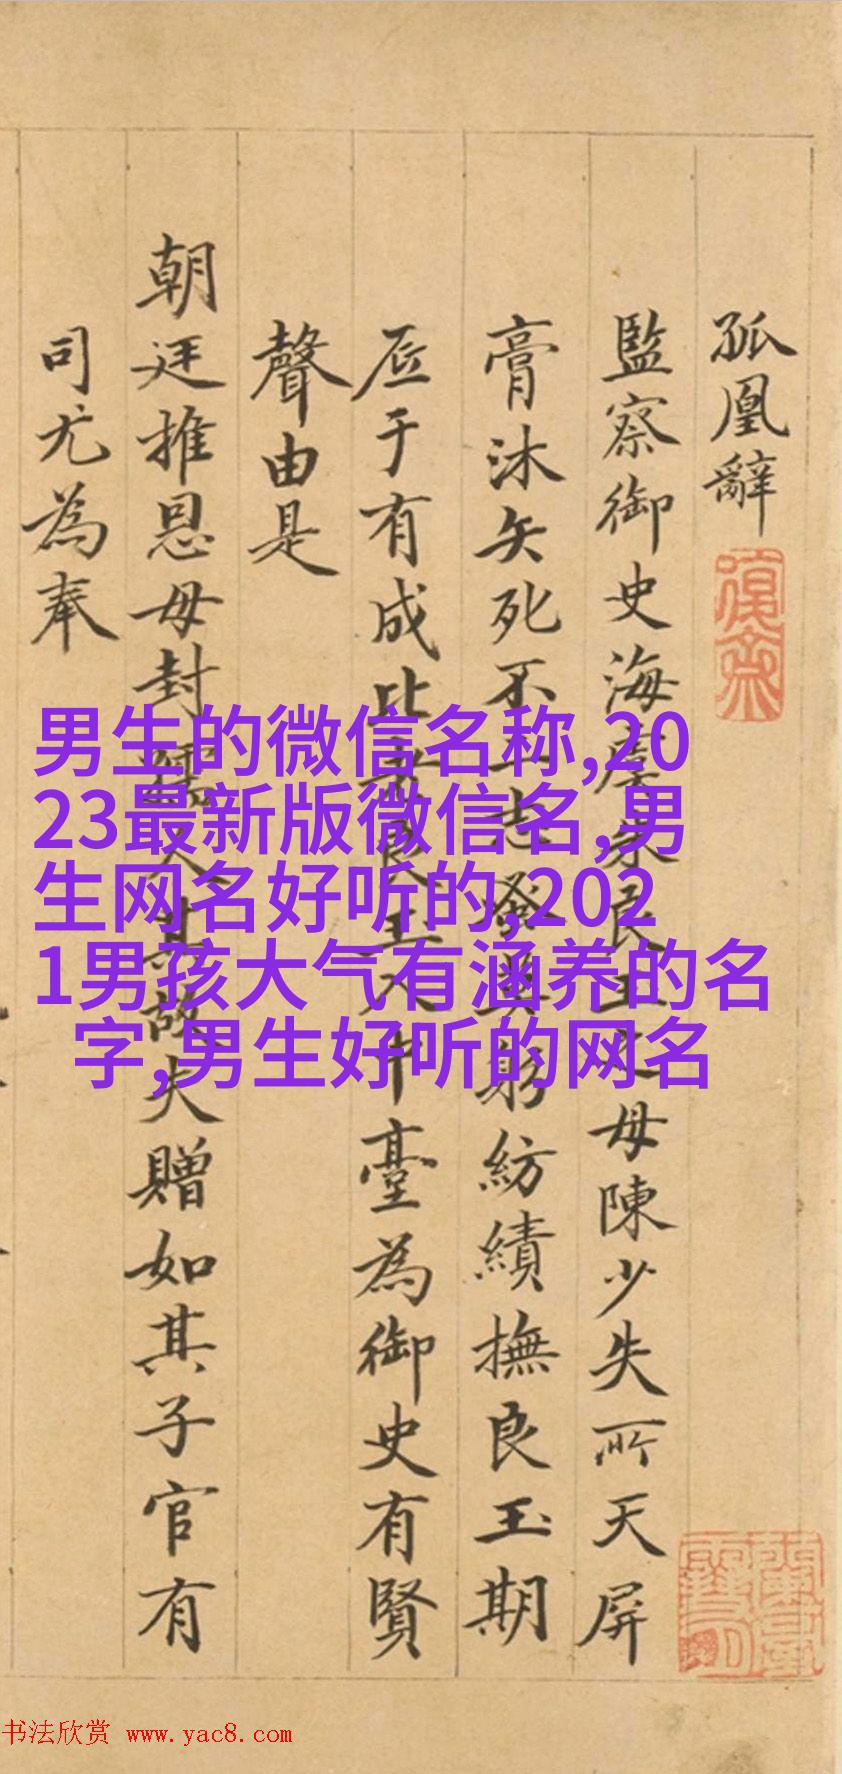 孤凰辭
監察御史海虞朱良玉之母陳少失所天屏
膏沐矢死不二志發奠躬紡績撫良玉期
底于有成比歲良玉入中臺為御史有賢
聲由是
朝廷推恩母封孺人其故夫贈如其子官有
司尤為奉
男生的微信名称,20
23最新版微信名,男
生网名好听的,202
1男孩大气有涵养的名
字,男生好听的网名
书法欣赏 www.yac8.com